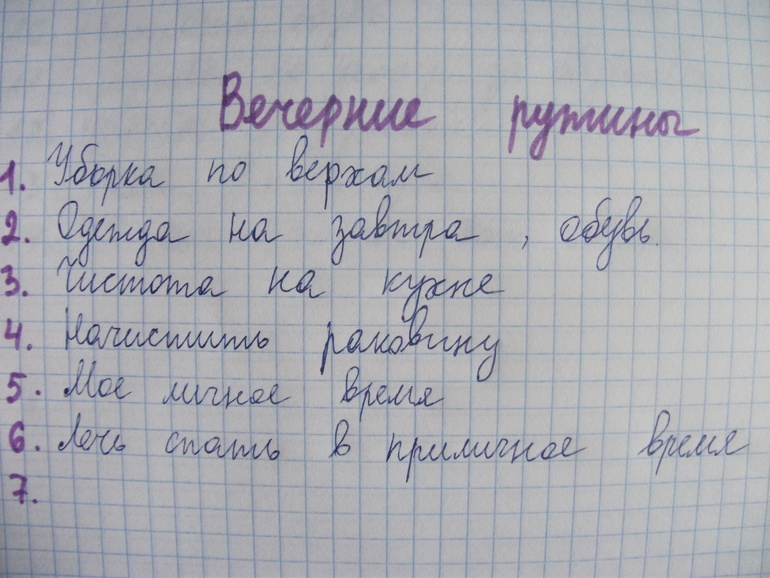 Вечерние рутины
1. Уборка по верхам
2. Одежда на завтра, обувь.
3. Чистота на кухне
4. Начистить раковину
5. Мое личное время
6. Лечь спать в приличное время
7.